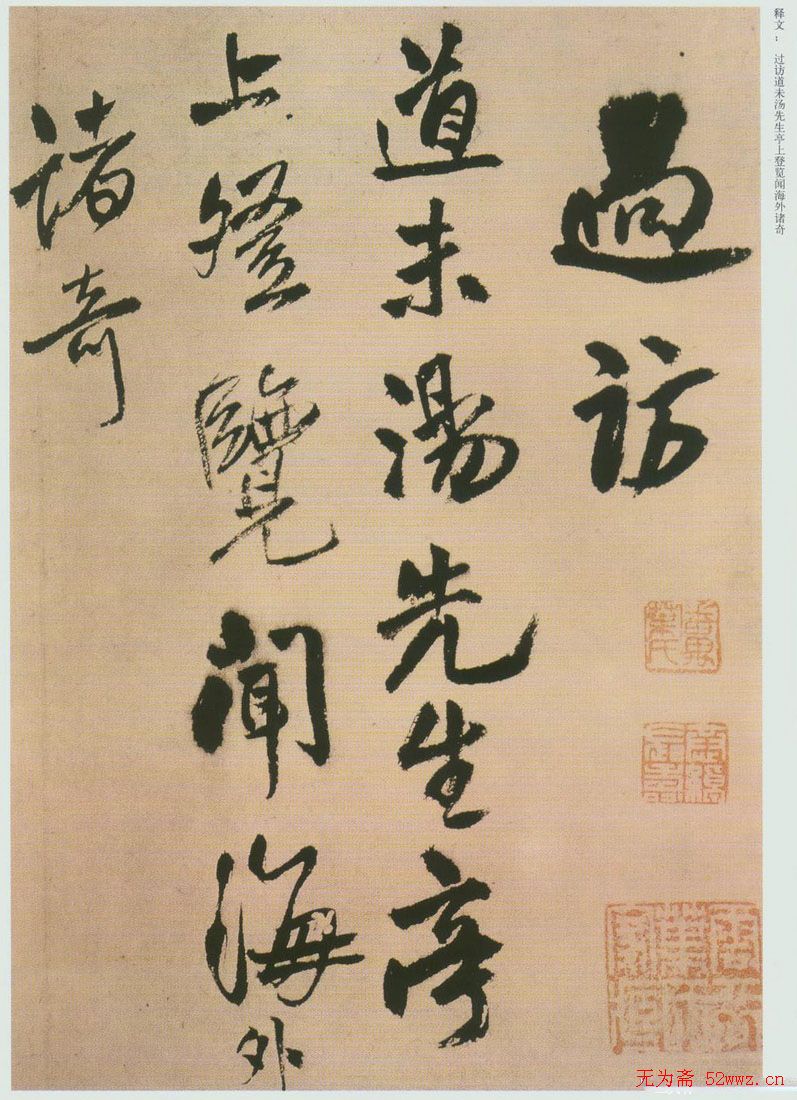 释文： 过访道未汤先生亭上登览闻海外诸奇
過訪
道未湯先生亭
上登覽聞海外
諸奇
无为斋 52wwz.cn